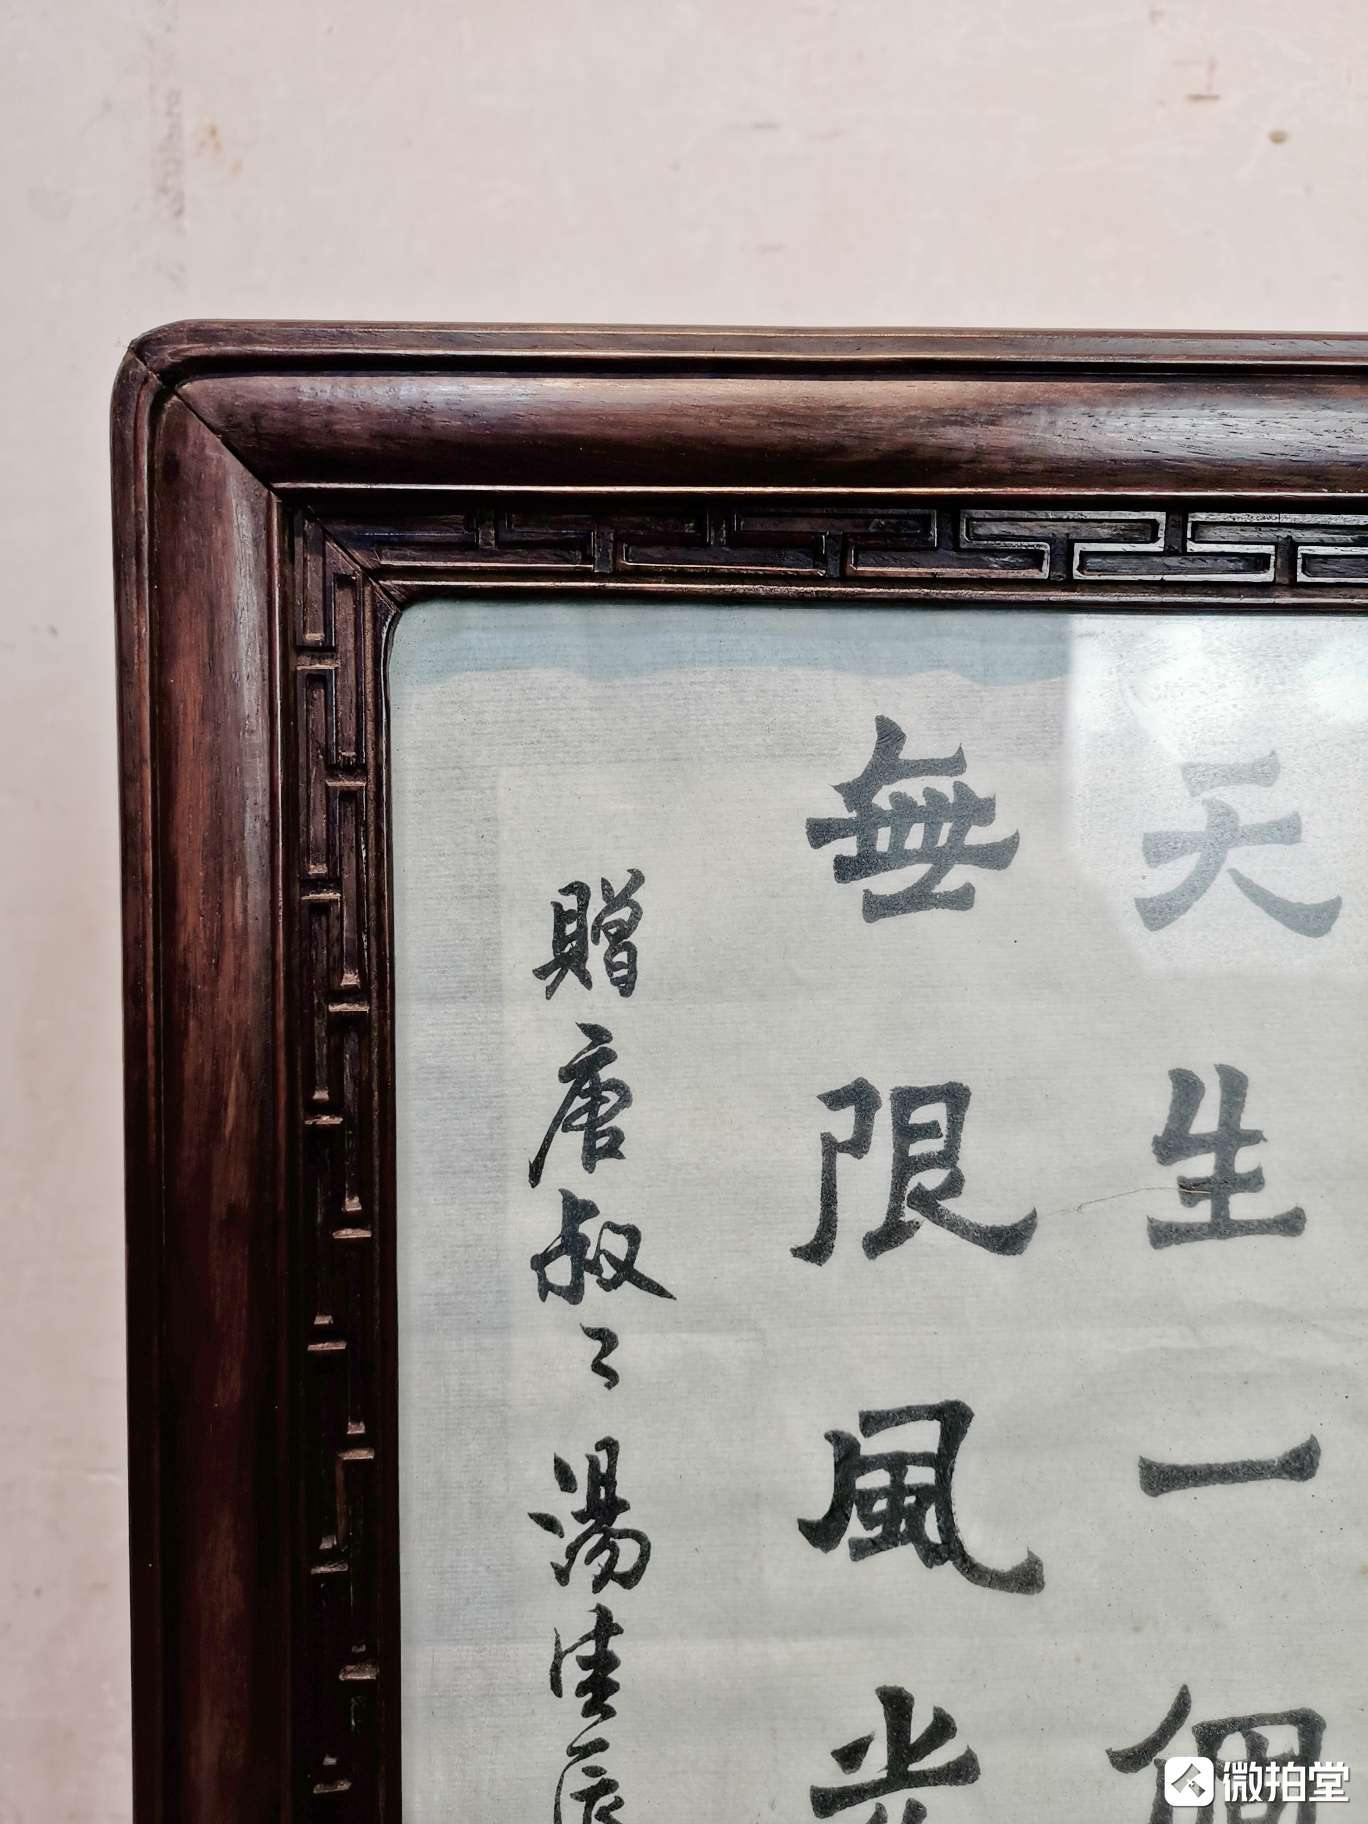 天生一個
無限風光
贈唐叔〻湯生辰
微拍堂